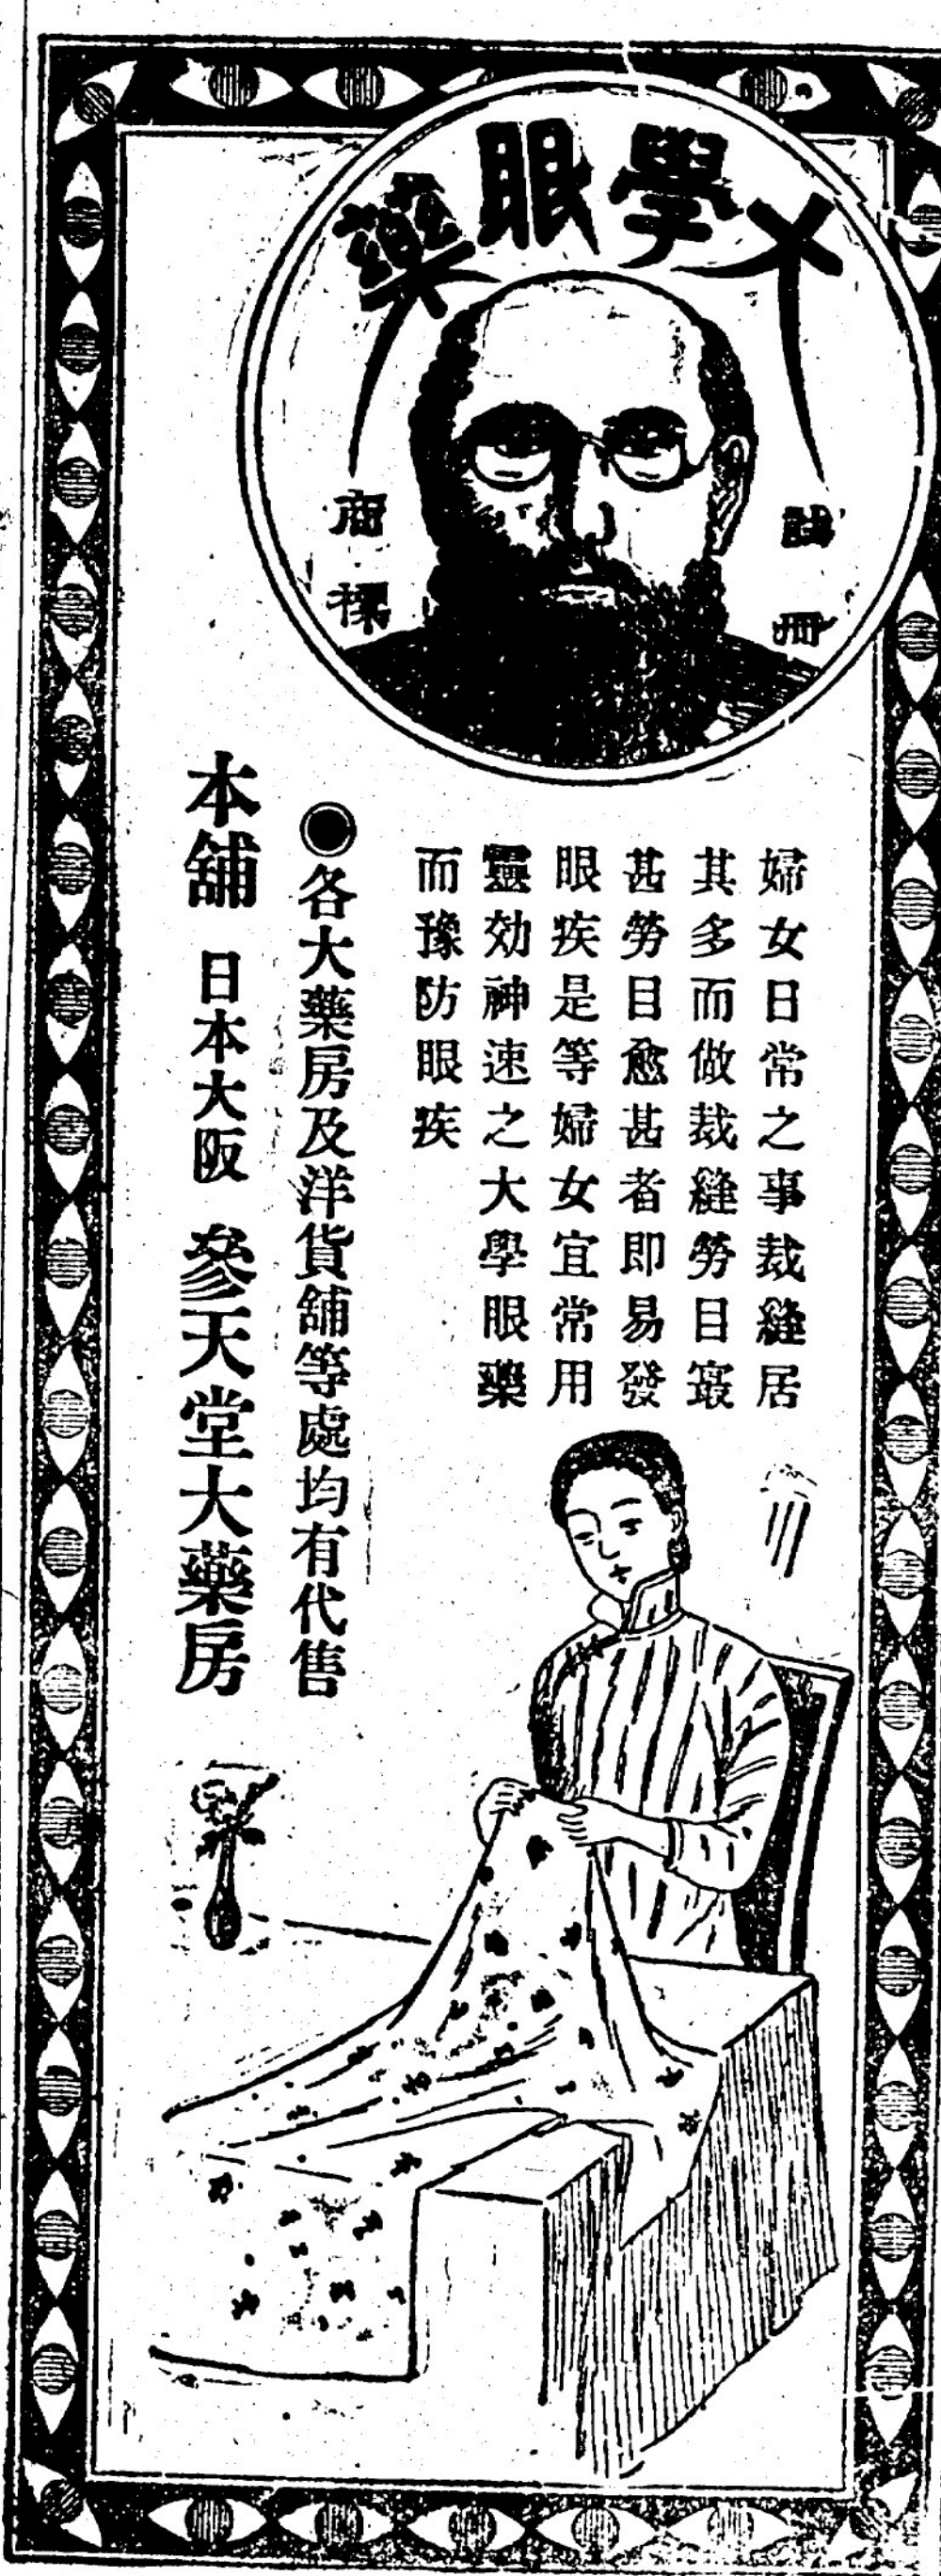 大學眼藥
註冊
商標
婦女日常之事裁縫居
其多而做裁縫勞目㝡
甚勞目愈甚者即易發
眼疾是等婦女宜常用
靈効神速之大學眼藥
而豫防眼疾
●各大藥房及洋貨舖等處均有代售
本舖 日本大阪 參天堂大藥房